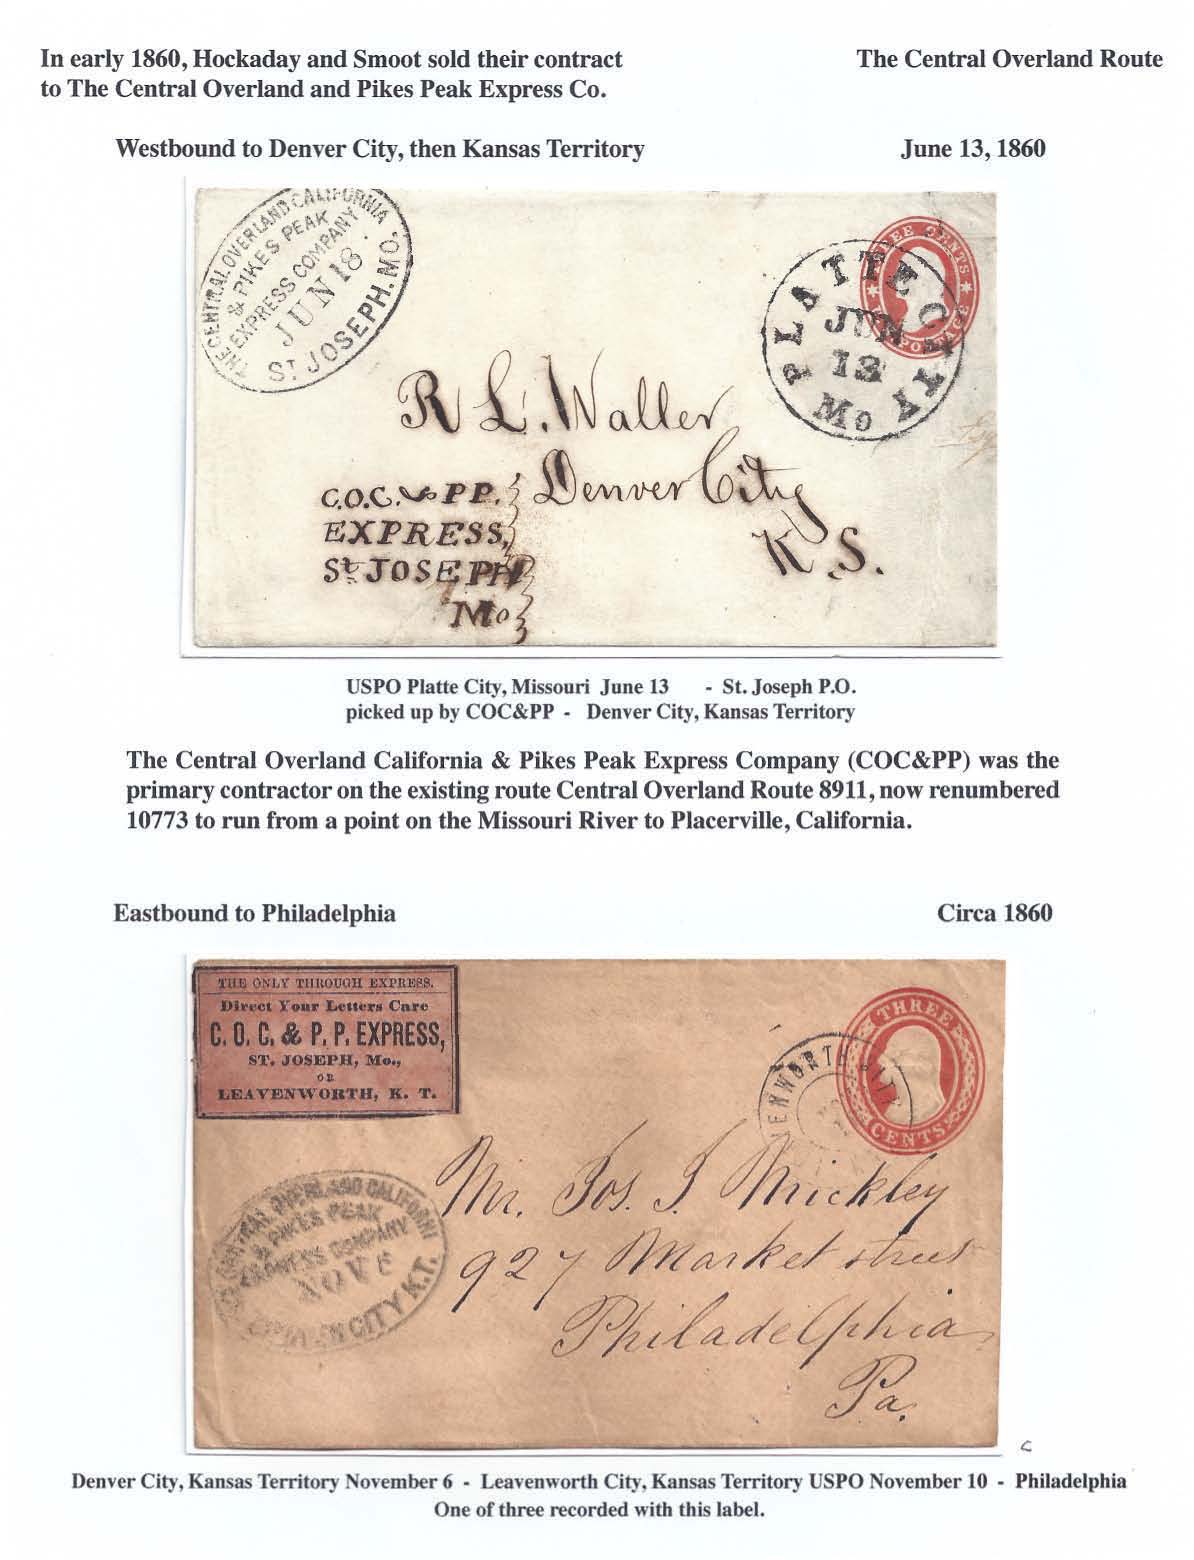 In early 1860, Hockaday and Smoot sold their contract
to The Central Overland and Pikes Peak Express Co.
The Central Overland Route
Westbound to Denver City, then Kansas Territory
June 13, 1860
THE CENTRAL OVERLAND CALIFORNIA
& PIKES PEAK
EXPRESS COMPANY
JUN 18
ST JOSEPH. MO.
THREE CENTS
POSTAGE
PLATTE CITY
JUN
13
Mo
R L. Waller
Denver City
K.S.
C.O.C. & PP.
EXPRESS,
St JOSEPH
Mo
USPO Platte City, Missouri June 13 - St. Joseph P.O.
picked up by COC&PP - Denver City, Kansas Territory
The Central Overland California & Pikes Peak Express Company (COC&PP) was the
primary contractor on the existing route Central Overland Route 8911, now renumbered
10773 to run from a point on the Missouri River to Placerville, California.
Eastbound to Philadelphia
Circa 1860
THE ONLY THROUGH EXPRESS.
Direct Your Letters Care
C. O. C. & P. P. EXPRESS,
ST. JOSEPH, Mo.,
OR
LEAVENWORTH, K. T.
THREE
CENTS
ENWORTH CITY
CENTRAL OVERLAND CALIFORNI
& PIKES PEAK
EXPRESS COMPANY
NOV 6
CITY K.T.
Mr. Jos. J. Mickley
927 Market street
Philadelphia
Pa.
C
Denver City, Kansas Territory November 6 - Leavenworth City, Kansas Territory USPO November 10 - Philadelphia
One of three recorded with this label.